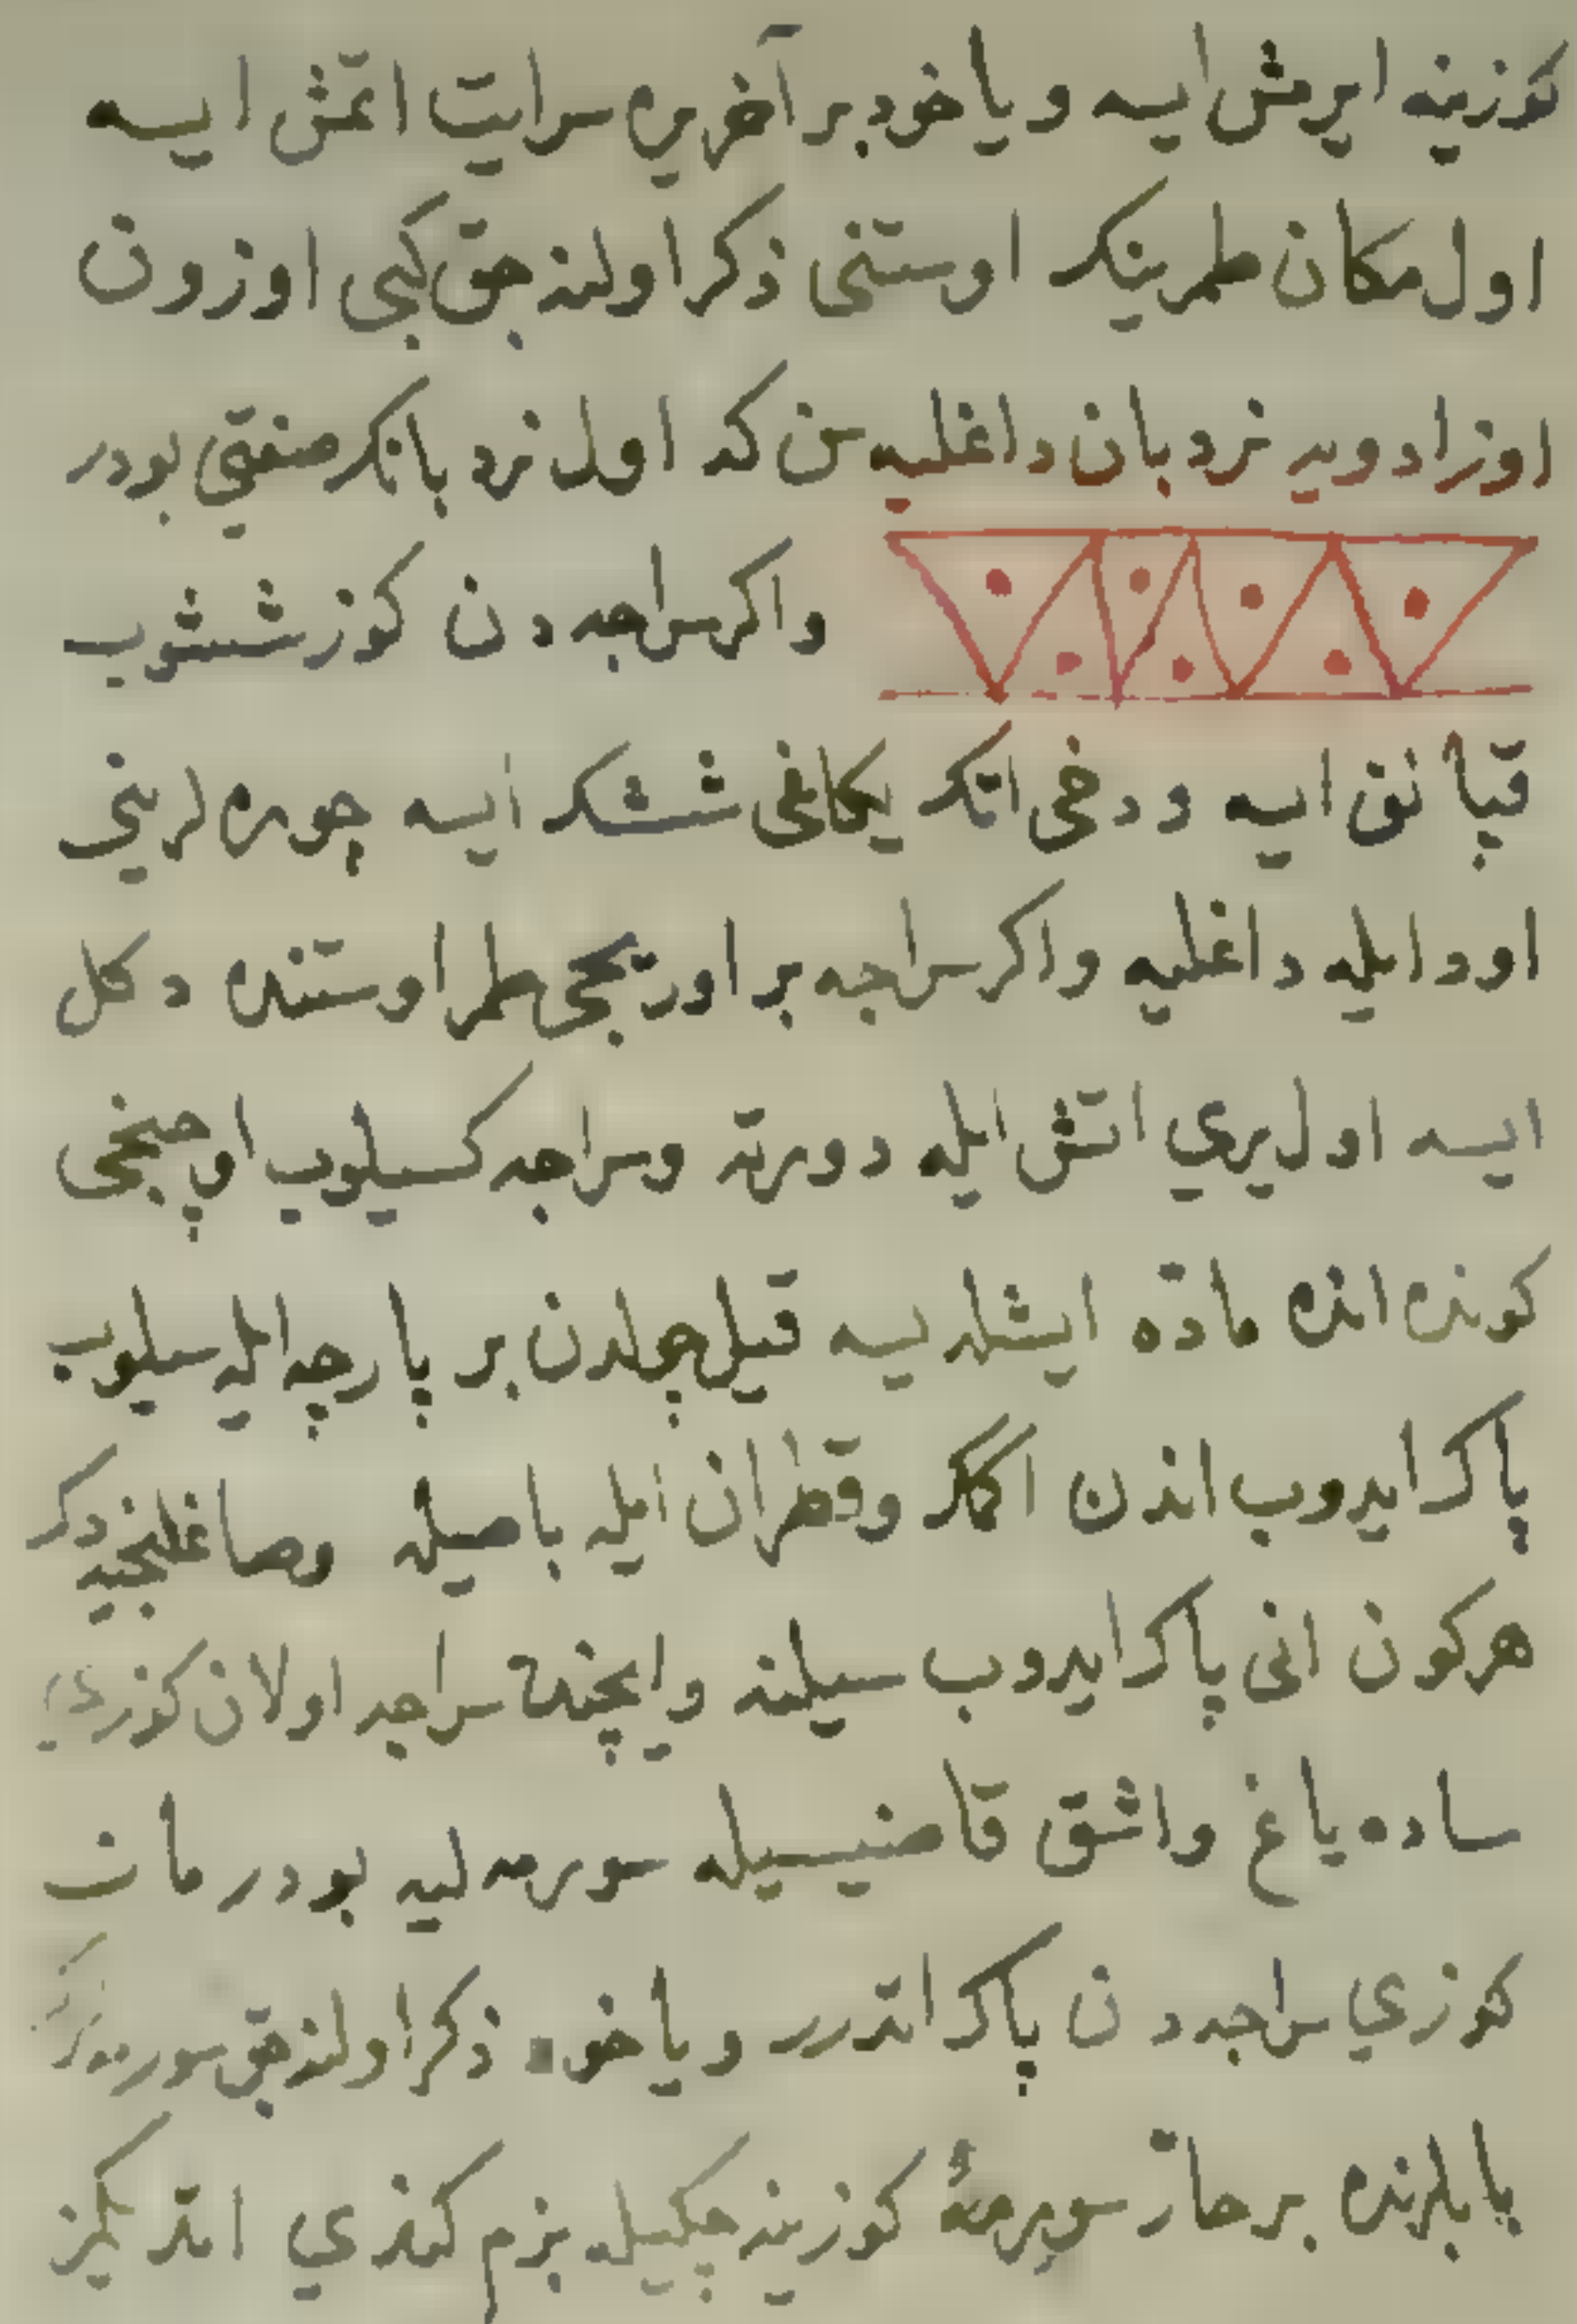 كوزينه ايرمش ايسه و ياخود بر آخر يره سرايت اتمش ايسه
اول مكان طمرينك اوستنى ذكر اولنه جق كبى اوزون
اوزادويه نردبان داغليه سن كه اول نردبانك صنعتى بودر
واكر سراجه دن كوز ششوب
قپانق ايسه ودخى انك يكاغى ششك ايسه چوره لرينى
اود ايله داغليه واكر سراجه بر اوريجى طمر اوستنده دكل
ايسه اول يرى اتش ايله دورته وسراجه كسيلوب اوچنجى
كونده انده مادّه ايشلريسه قيل چولدن بر پارچه ايله سيلوب
پاك ايدوب اندن اكك وقطران ايله باصيله وصاغلنجيه دك
هركون انى پاك ايدوب سيلنه وايچنده سراجه اولان كوزى
ساده ياغ واشق قاضيسيله سورمه ليه بو درمان
كوزى سراجه دن پاك ايدر وياخود ذكر اولنه جق
بابلرنده بر حارّ سورمهٔ كوزينه چكيله بزم كندى